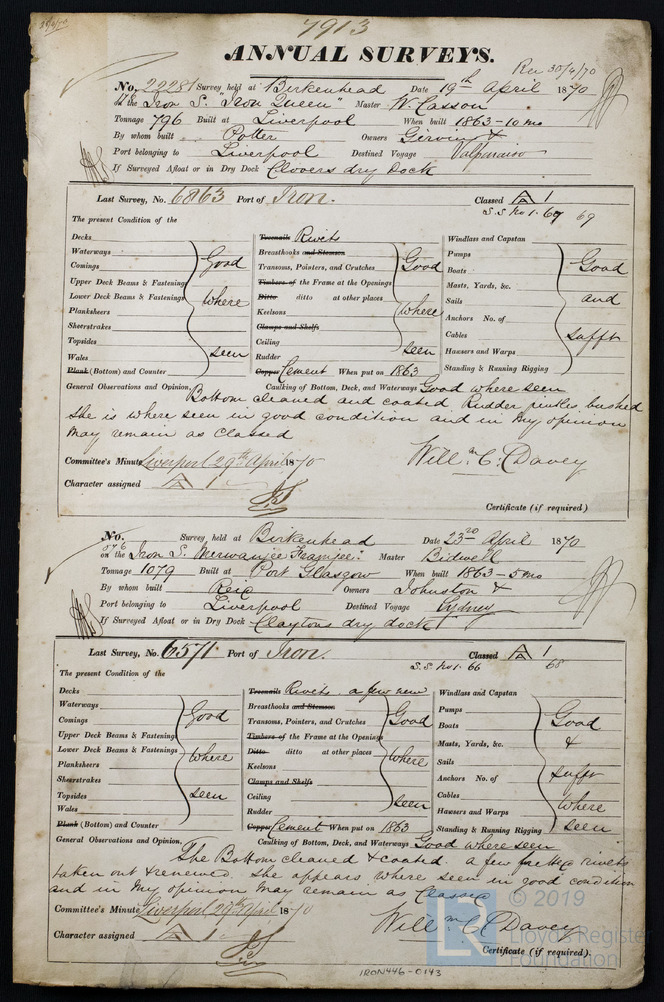 7913
ANNUAL SURVEYS.
Rec 30/4/70
No. 22281 Survey held at Birkenhead Date 19th April 1870
on the Iron S. "Iron Queen" Master W. Casson
Tonnage 796 Built at Liverpool When built 1863-10 mo
By whom built Potter Owners Girvin &
Port belonging to Liverpool Destined Voyage Valparaiso
If Surveyed Afloat or in Dry Dock Clovers dry Dock
Last Survey, No. 6863 Port of Iron. Classed A 1
S.S. No 1. 69 69
The present Condition of the
Decks Treenails Rivets Windlass and Capstan
Waterways Breasthooks and Stemson Pumps
Comings Good Transoms, Pointers, and Crutches Good Boats Good
Upper Deck Beams & Fastenings Timbers of the Frame at the Openings Masts, Yards, &c.
Lower Deck Beams & Fastenings where Ditto ditto at other places where Sails and
Planksheers Keelsons Anchors No. of
Sheerstrakes Clamps and Shelfs Cables sufft
Topsides seen Ceiling seen Hawsers and Warps
Wales Rudder Standing & Running Rigging
Plank (Bottom) and Counter Copper Cement When put on 1863
General Observations and Opinion, Caulking of Bottom, Deck, and Waterways Good where seen
Bottom cleaned and coated Rudder pintles bushed
She is where seen in good condition and in my opinion
May remain as classed
Committee's Minute Liverpool 29th April 1870 Willm C. Davey
Character assigned A 1
Certificate (if required).
No. 576 Survey held at Birkenhead Date 23rd April 1870
on the Iron S. "Merwanjee Framjee." Master Bidwell
Tonnage 1079 Built at Port Glasgow When built 1863-5 mo
By whom built Reid Owners Johnston &
Port belonging to Liverpool Destined Voyage Sydney
If Surveyed Afloat or in Dry Dock Claytons dry dock
Last Survey, No. 6571 Port of Iron. Classed A 1
S.S. No 1. 66 68
The present Condition of the
Decks Treenails Rivets a few new Windlass and Capstan
Waterways Breasthooks and Stemson Pumps
Comings Good Transoms, Pointers, and Crutches Good Boats Good
Upper Deck Beams & Fastenings Timbers of the Frame at the Openings Masts, Yards, &c. &
Lower Deck Beams & Fastenings where Ditto ditto at other places where Sails
Planksheers Keelsons Anchors No. of sufft
Sheerstrakes Clamps and Shelfs Cables
Topsides seen Ceiling seen Hawsers and Warps where
Wales Rudder Standing & Running Rigging seen
Plank (Bottom) and Counter Copper Cement When put on 1863
General Observations and Opinion, Caulking of Bottom, Deck, and Waterways Good where seen
The Bottom cleaned & coated a few rivets
taken out & renewed. She appears where seen in good condition
and in my opinion may remain as Classed
Committee's Minute Liverpool 29th April 1870
Willm C. Davey
Character assigned A 1
Certificate (if required).
IRON446-0143
LR
© 2019
Lloyd's Register
Foundation